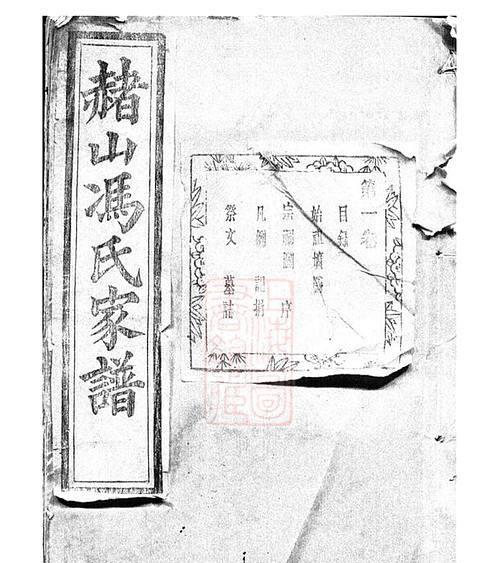 赭山馮氏家譜
第一卷
目錄
始祖墳
宗祠圖 序
凡例 記捐
祭文 墓誌